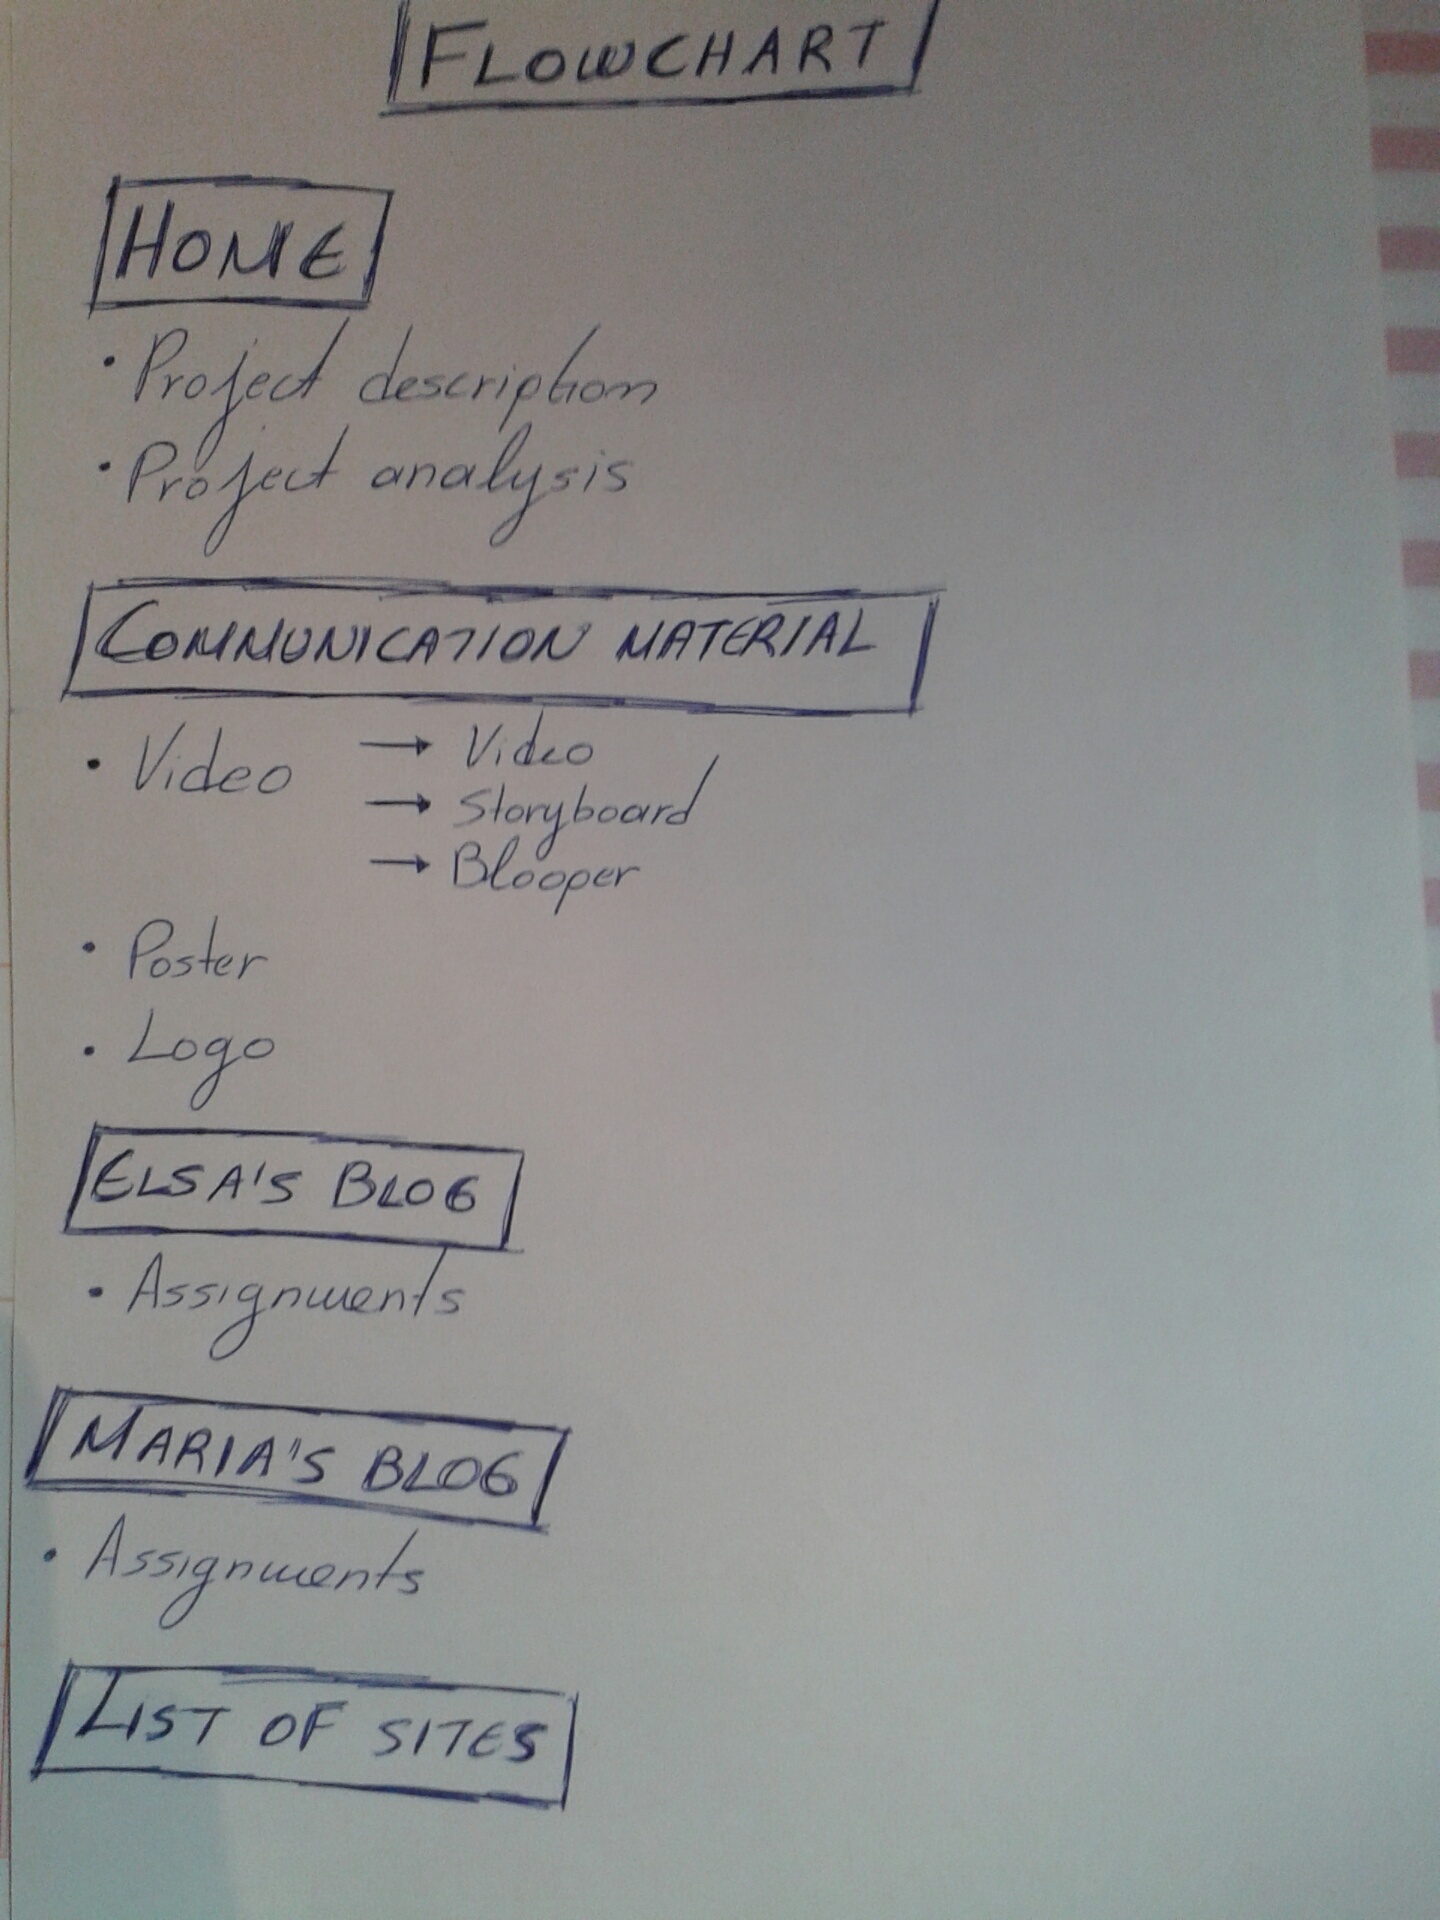 FLOWCHART
HOME
• Project description
• Project analysis
COMMUNICATION MATERIAL
• Video → Video
→ Storyboard
→ Blooper
• Poster
• Logo
ELSA'S BLOG
• Assignments
MARIA'S BLOG
• Assignments
LIST OF SITES